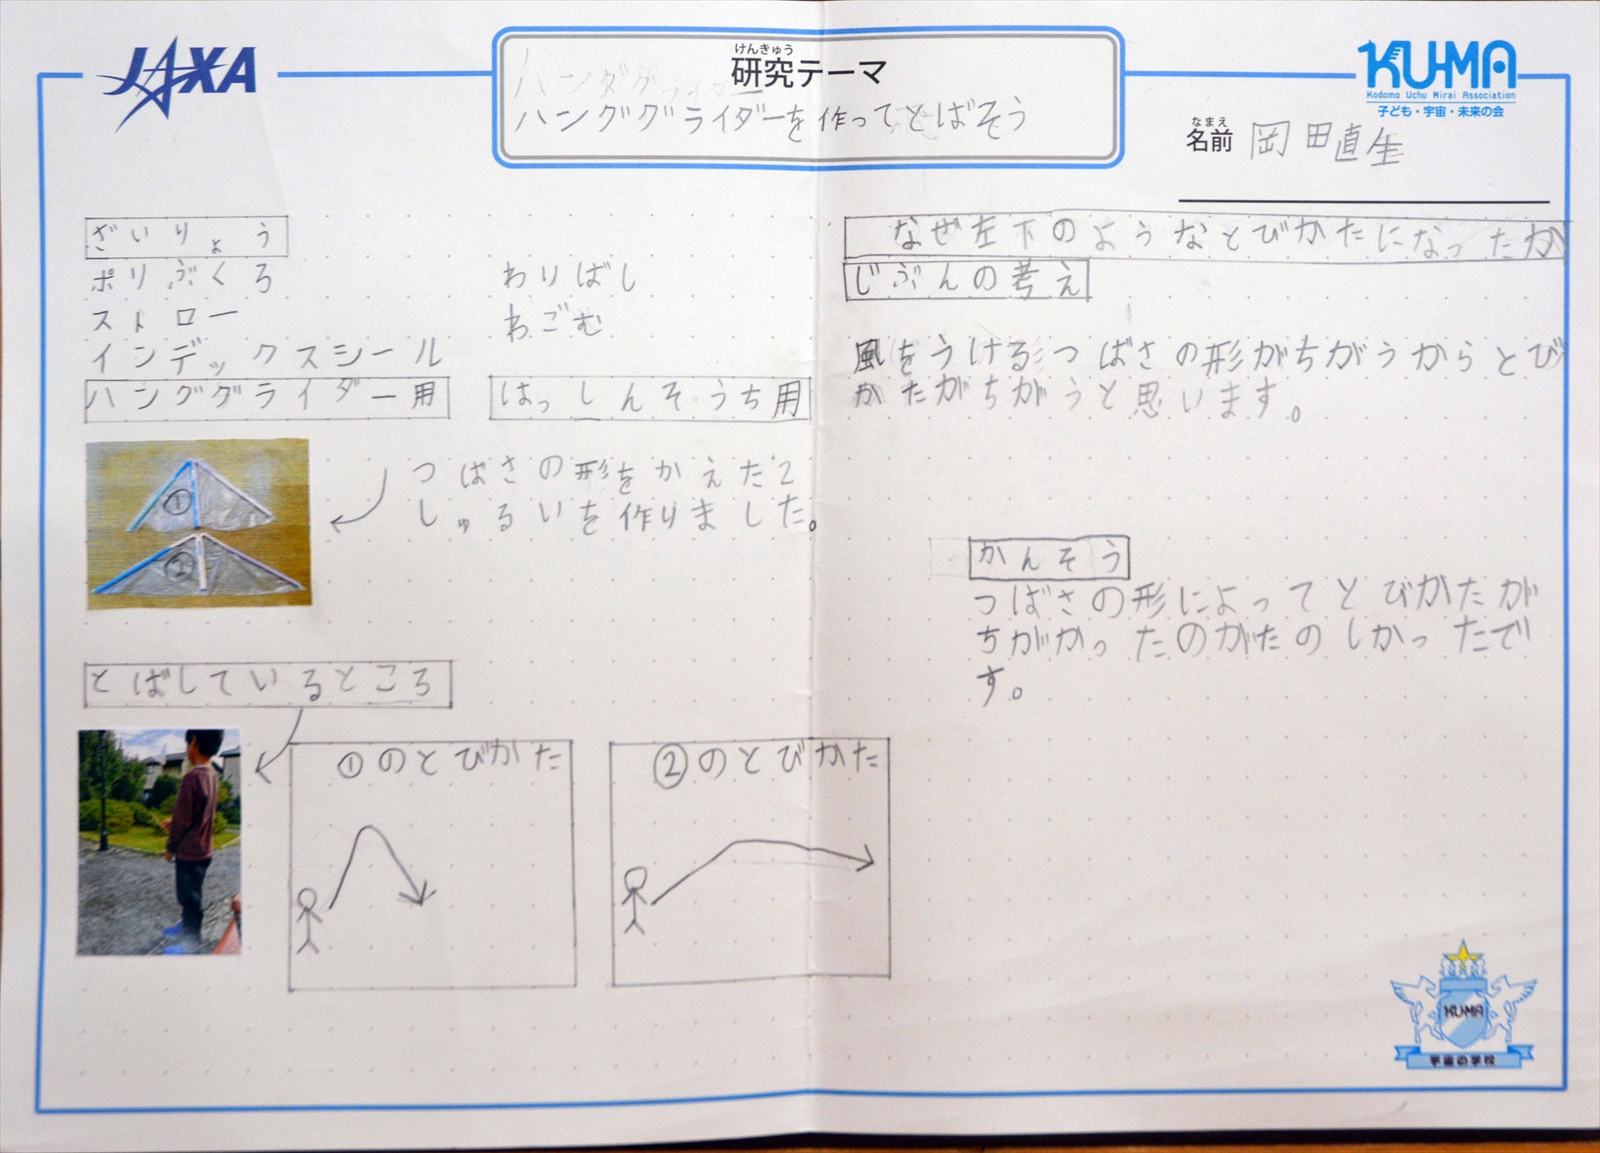 JAXA
けんきゅう
研究テーマ
ハンググライダーを作ってとばそう
KU-MA
Kodomo Uchu Mirai Association
子ども・宇宙・未来の会
なまえ
名前 岡田直生
ざいりょう
ポリぶくろ
ストロー
インデックスシール
ハンググライダー用
わりばし
わごむ
はっしんそうち用
①
②
つばさの形をかえた2
しゅるいを作りました。
とばしているところ
①のとびかた
②のとびかた
なぜ左下のようなとびかたになったか
じぶんの考え
風をうけるつばさの形がちがうからとび
かたがちがうと思います。
かんそう
つばさの形によってとびかたが
ちがかったのがたのしかったで
す。
KUMA
宇宙の学校